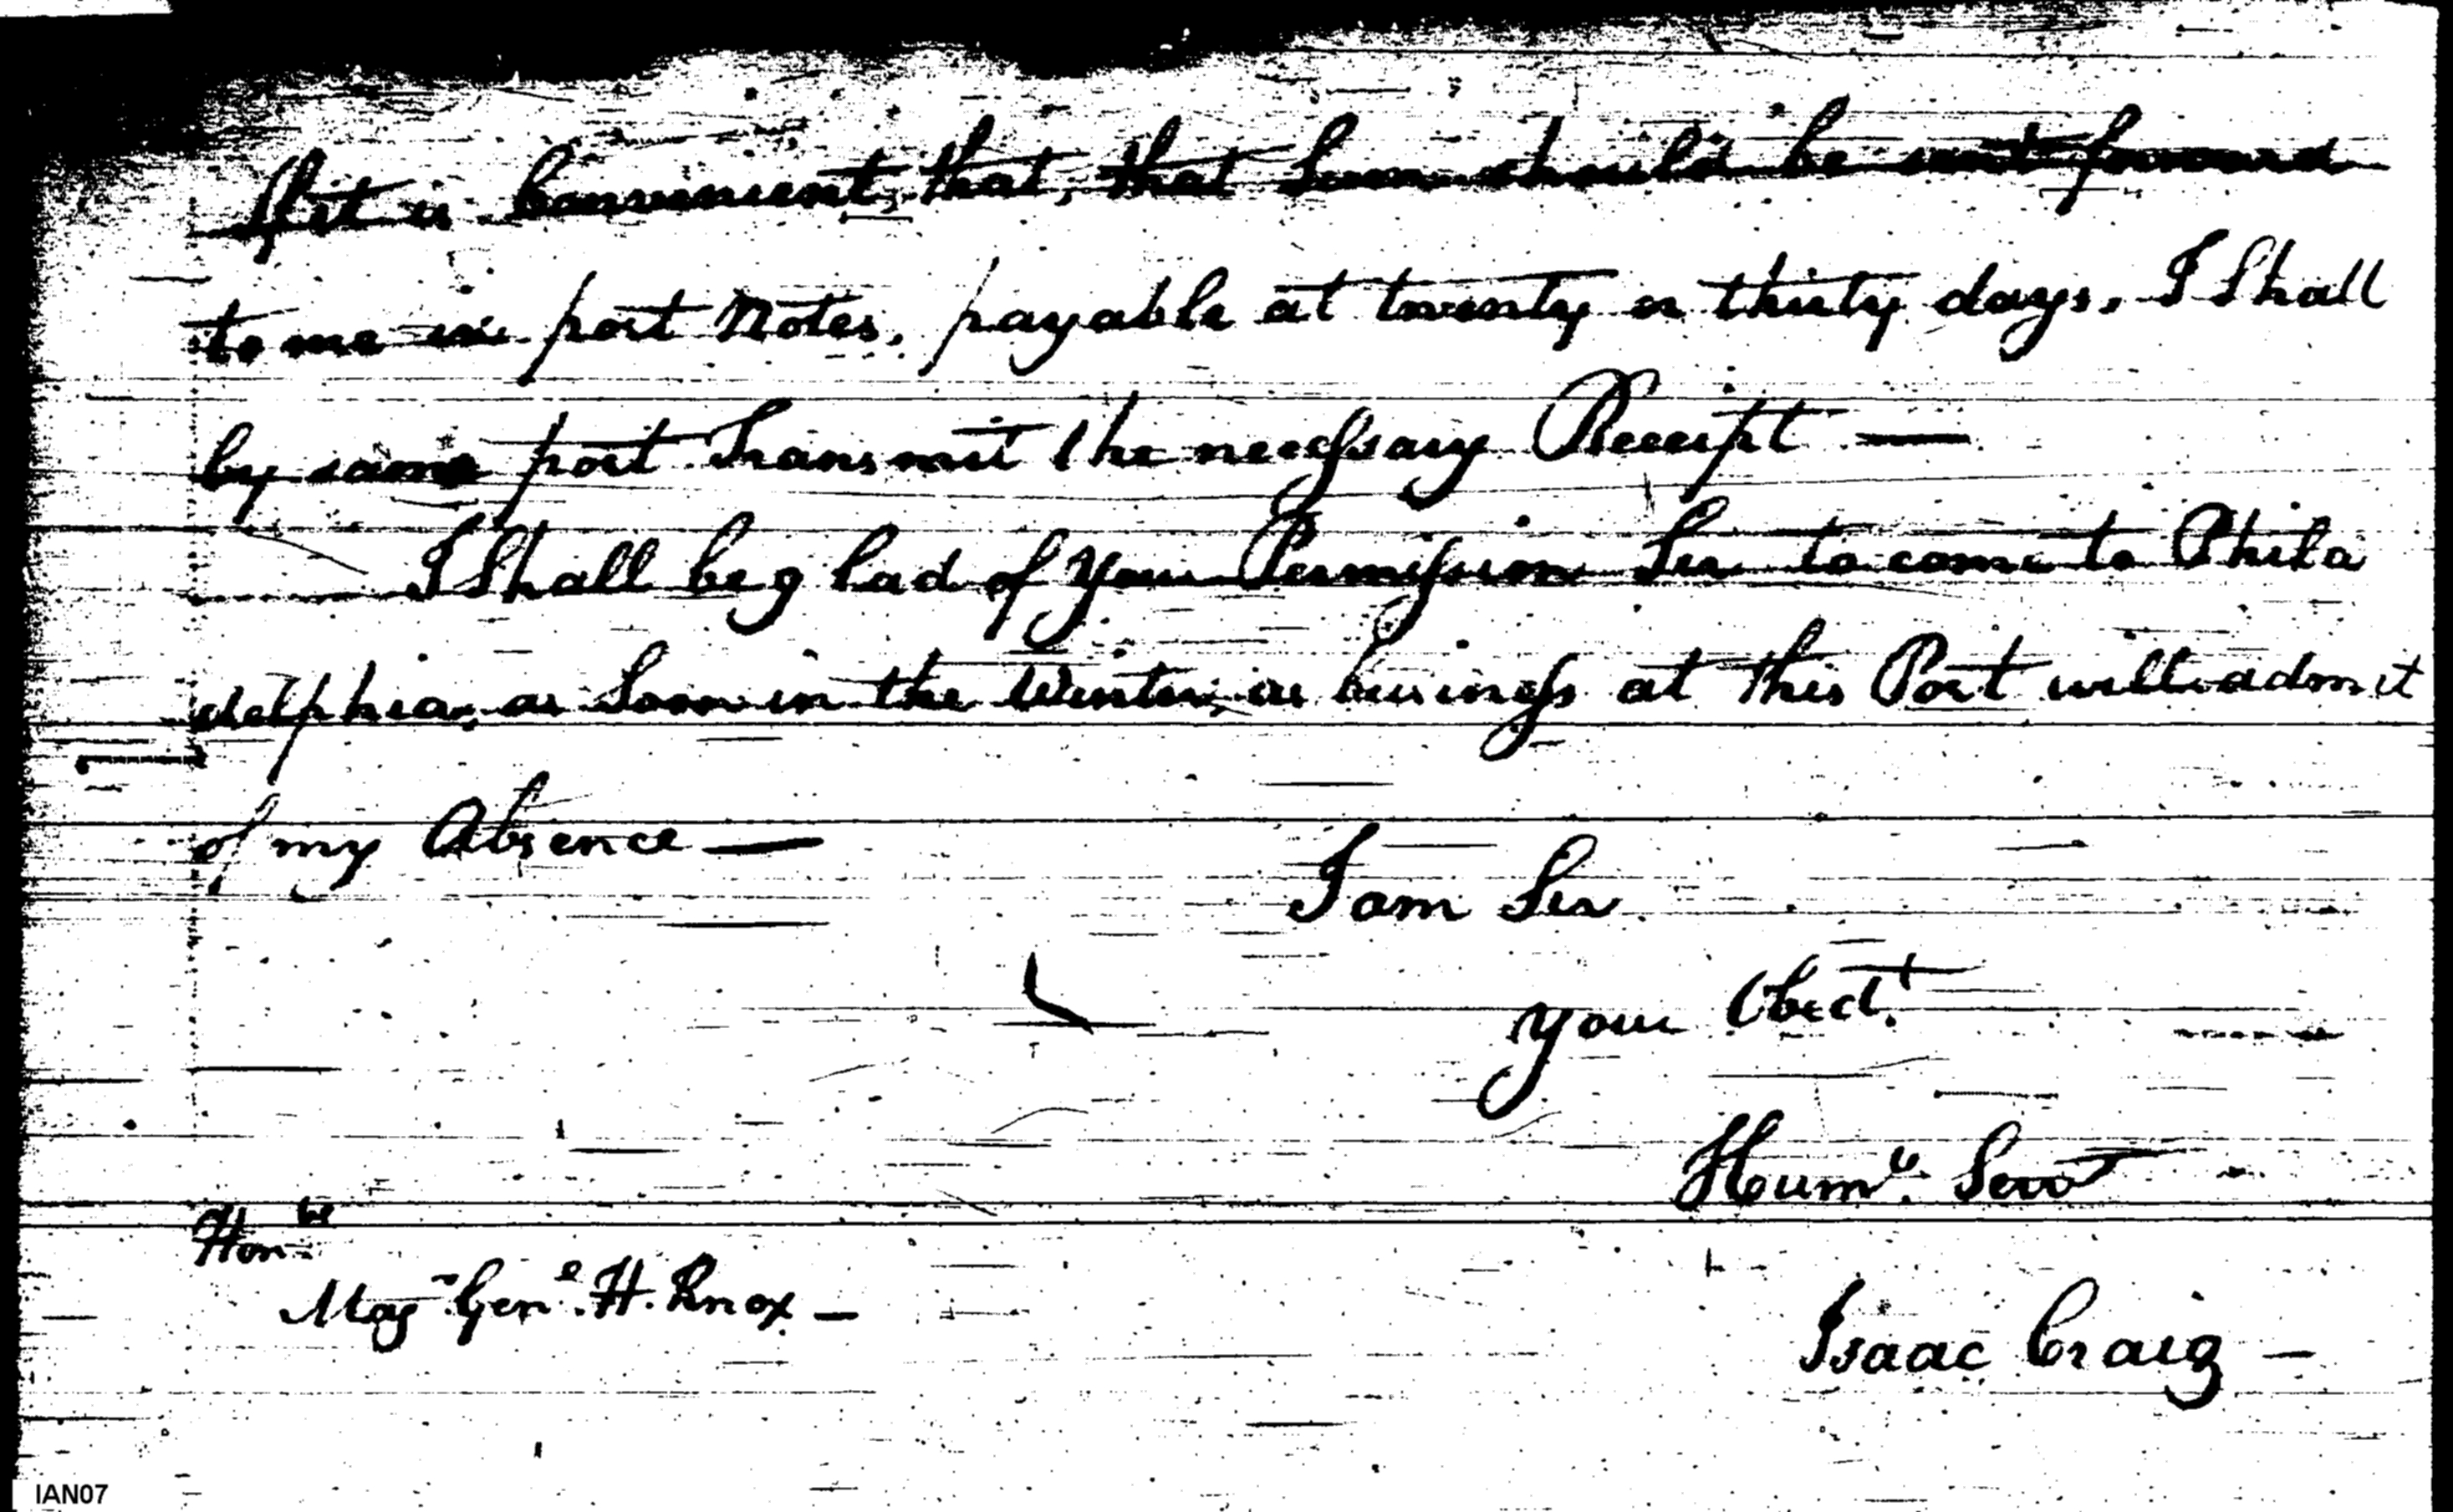 If it is Convenient, that, that Sum should be sent forward
to me in post Notes, payable at twenty or thirty days, I Shall
by same post Transmit the necessary Receipt —
I Shall be glad of your Permission Sir to come to Phila
delphia, as Soon in the Winter, as business at this Post will admit
of my Absence —
I am Sir
your Obedt.
Humle. Servt
Honble
Majr Genl. H. Knox —
Isaac Craig —
IAN07